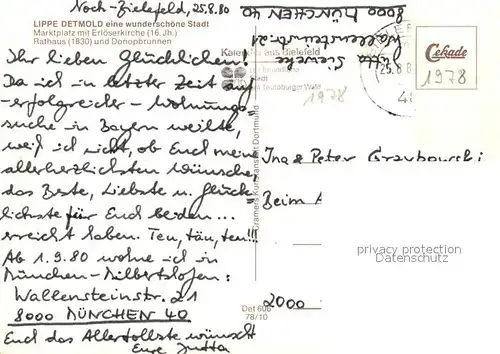 Noch-Bielefeld, 25.8.80
LIPPE DETMOLD eine wunderschöne Stadt
Marktplatz mit Erlöserkirche (16. Jh.)
Rathaus (1830) und Donopbrunnen
Ihr lieben Glücklichen!
Da ich in letzter Zeit auf
-erfolgreicher-Wohnungs-
suche in Bayern weilte,
weiß ich nicht, ob Euch meine
allerherzlichsten Wünsche
"das Beste, Liebste u. Glück-
lichste für Euch beiden..."
erreicht haben. Teu, täu, teu!!!
Ab 1.9.80 wohne ich in
München-Milbertshofen:
Wallensteinstr. 21
8000 MÜNCHEN 40
Euch das Allertollste wünscht
Eure Jutta
aus Bielefeld
Stadt
Teutoburger Wald
Cramers Kunstanstalt Dortmund
Det 606
78/10
Jutta
Wallensteinstr. 21
8000 MÜNCHEN 40
25.8.8
48
1978
Cekade
1978
Ina & Peter Grabowski
Beim
2000
privacy protection
watermark